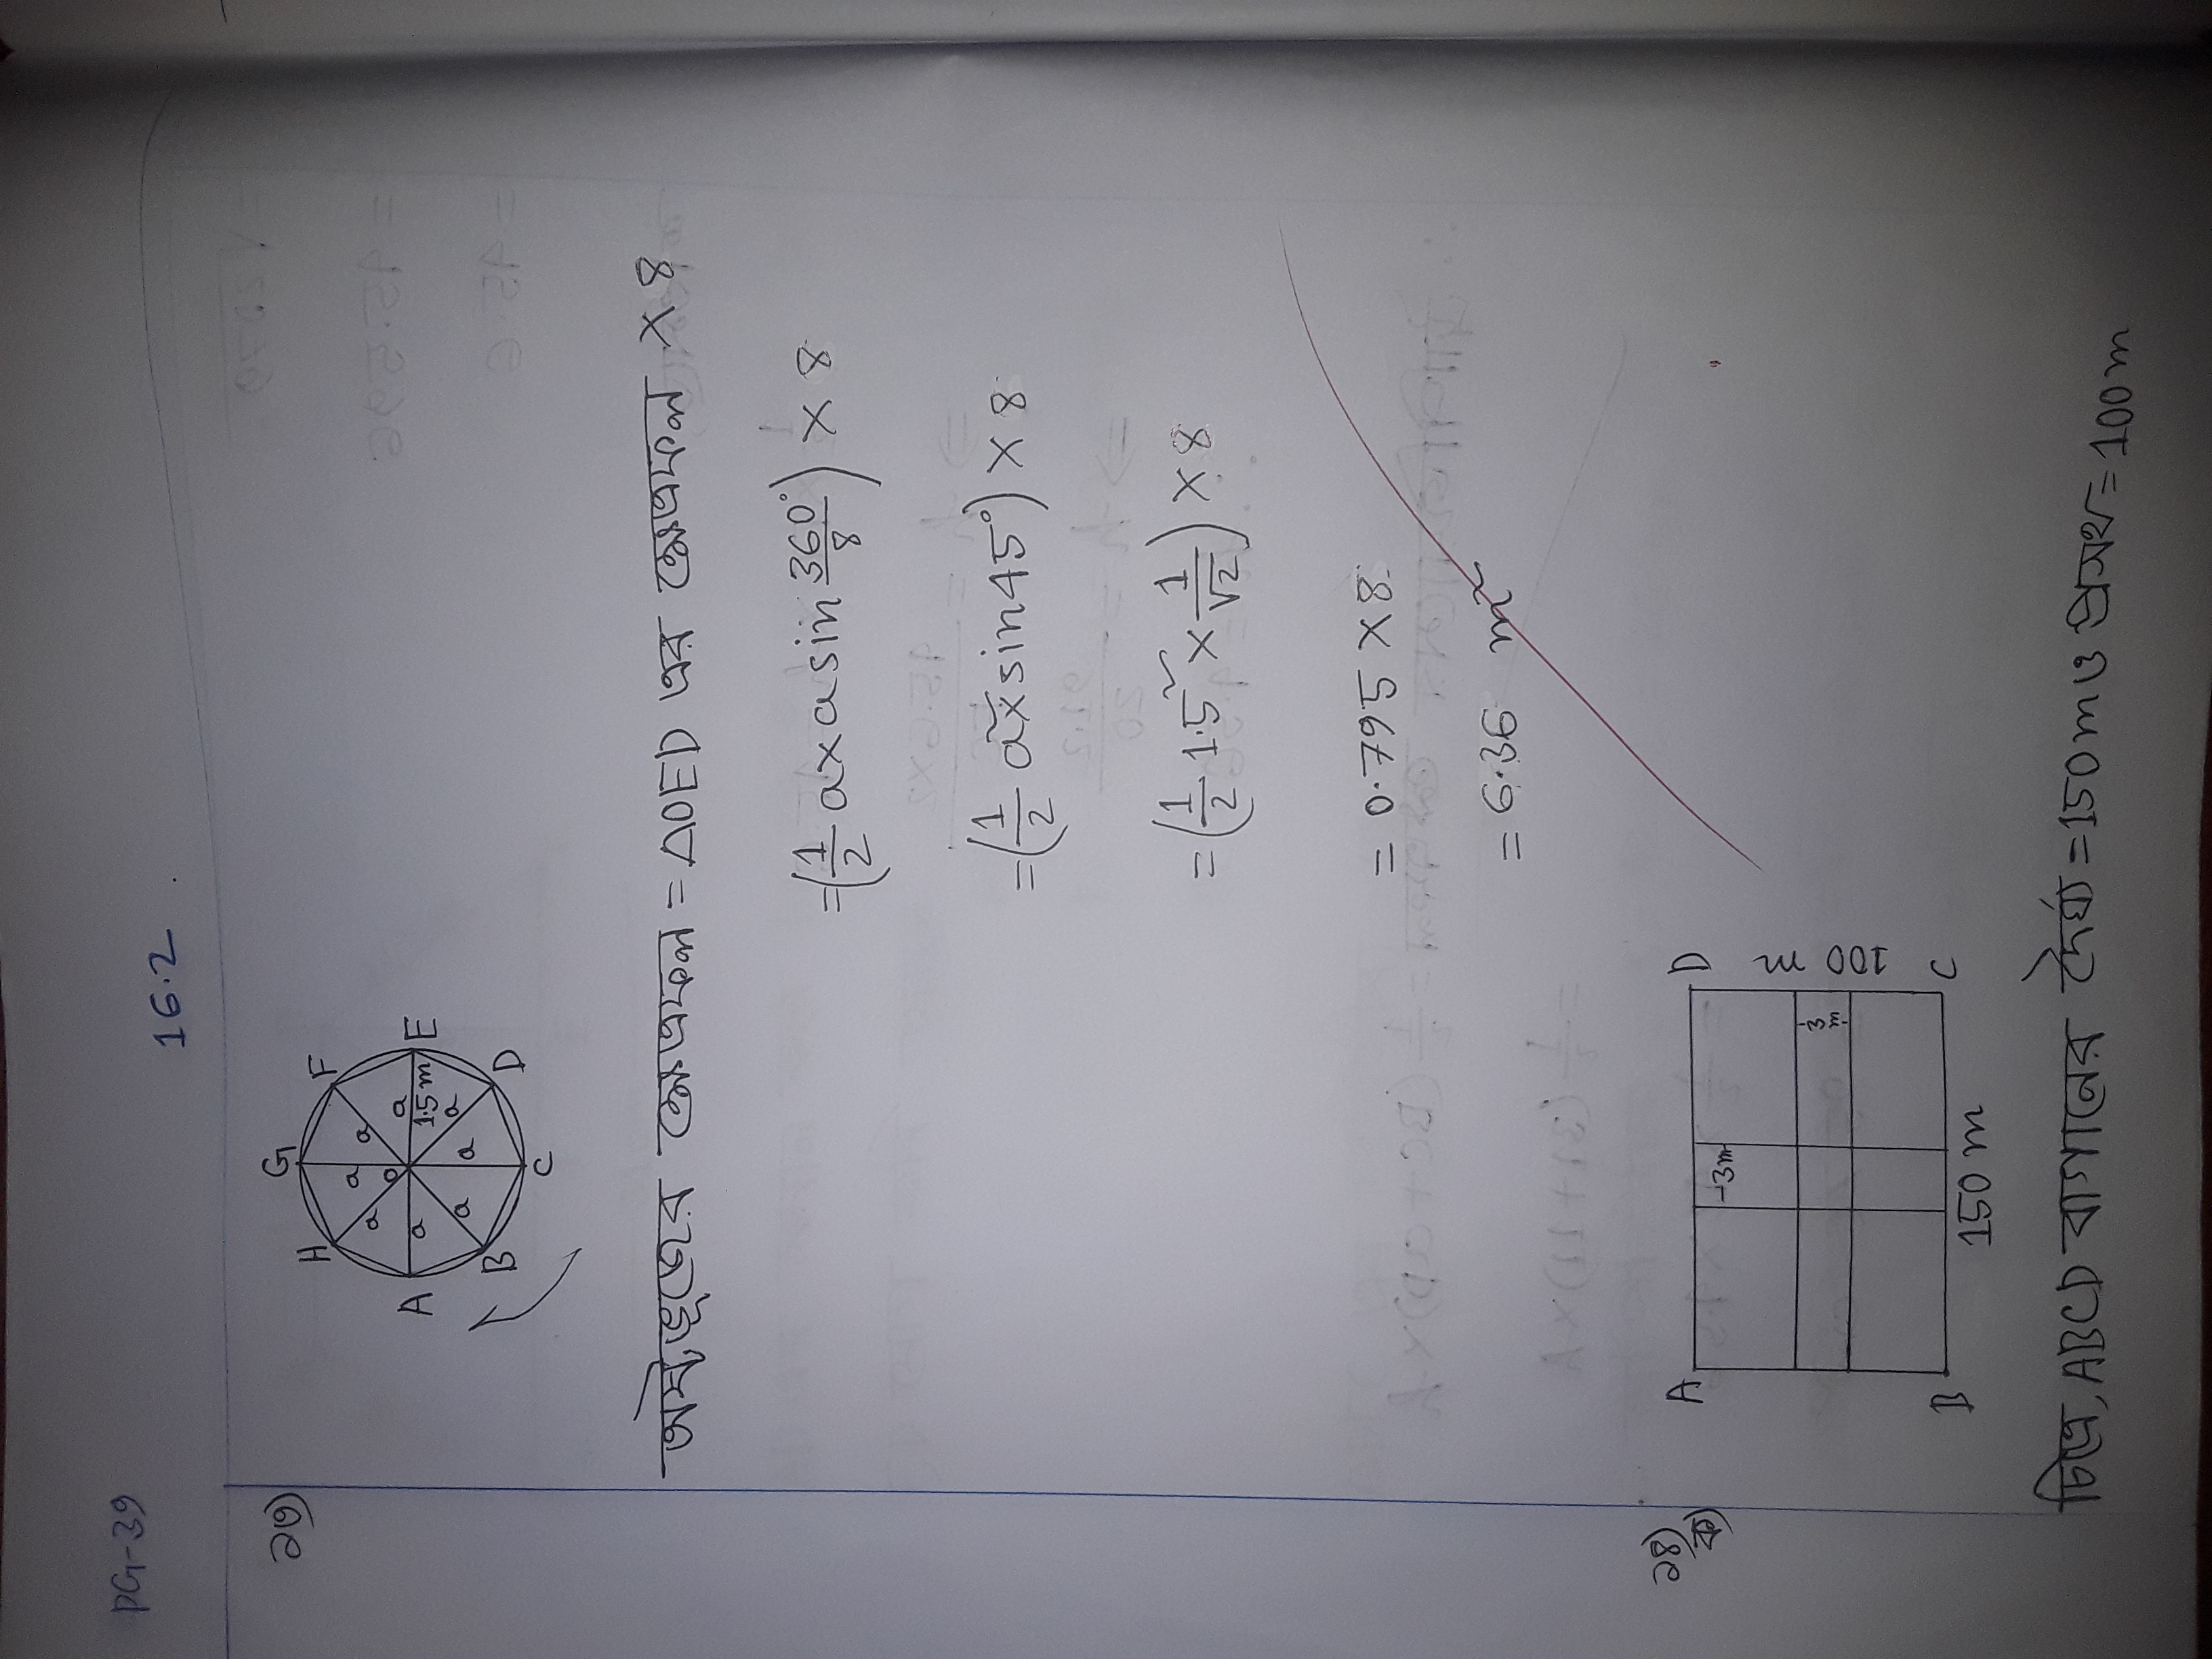 PG-39
16.2
২৩)
G
H
F
a
a
a
o
a
A
a
1.5 m
E
a
a
a
B
D
C
অষ্টভূজের ক্ষেত্রফল = ΔOED এর ক্ষেত্রফল × 8
= (1/2 a×a sin 360°/8) × 8
= (1/2 a² × sin45°) × 8
= (1/2 1.5² × 1/√2) × 8
= 0.795 × 8
= 6.36 m²
২৪)
ক)
A
D
3m
3
m
100 m
B
C
150 m
চিত্রে, ABCD বাগানের দৈর্ঘ্য = 150 m ও প্রসথ = 100 m